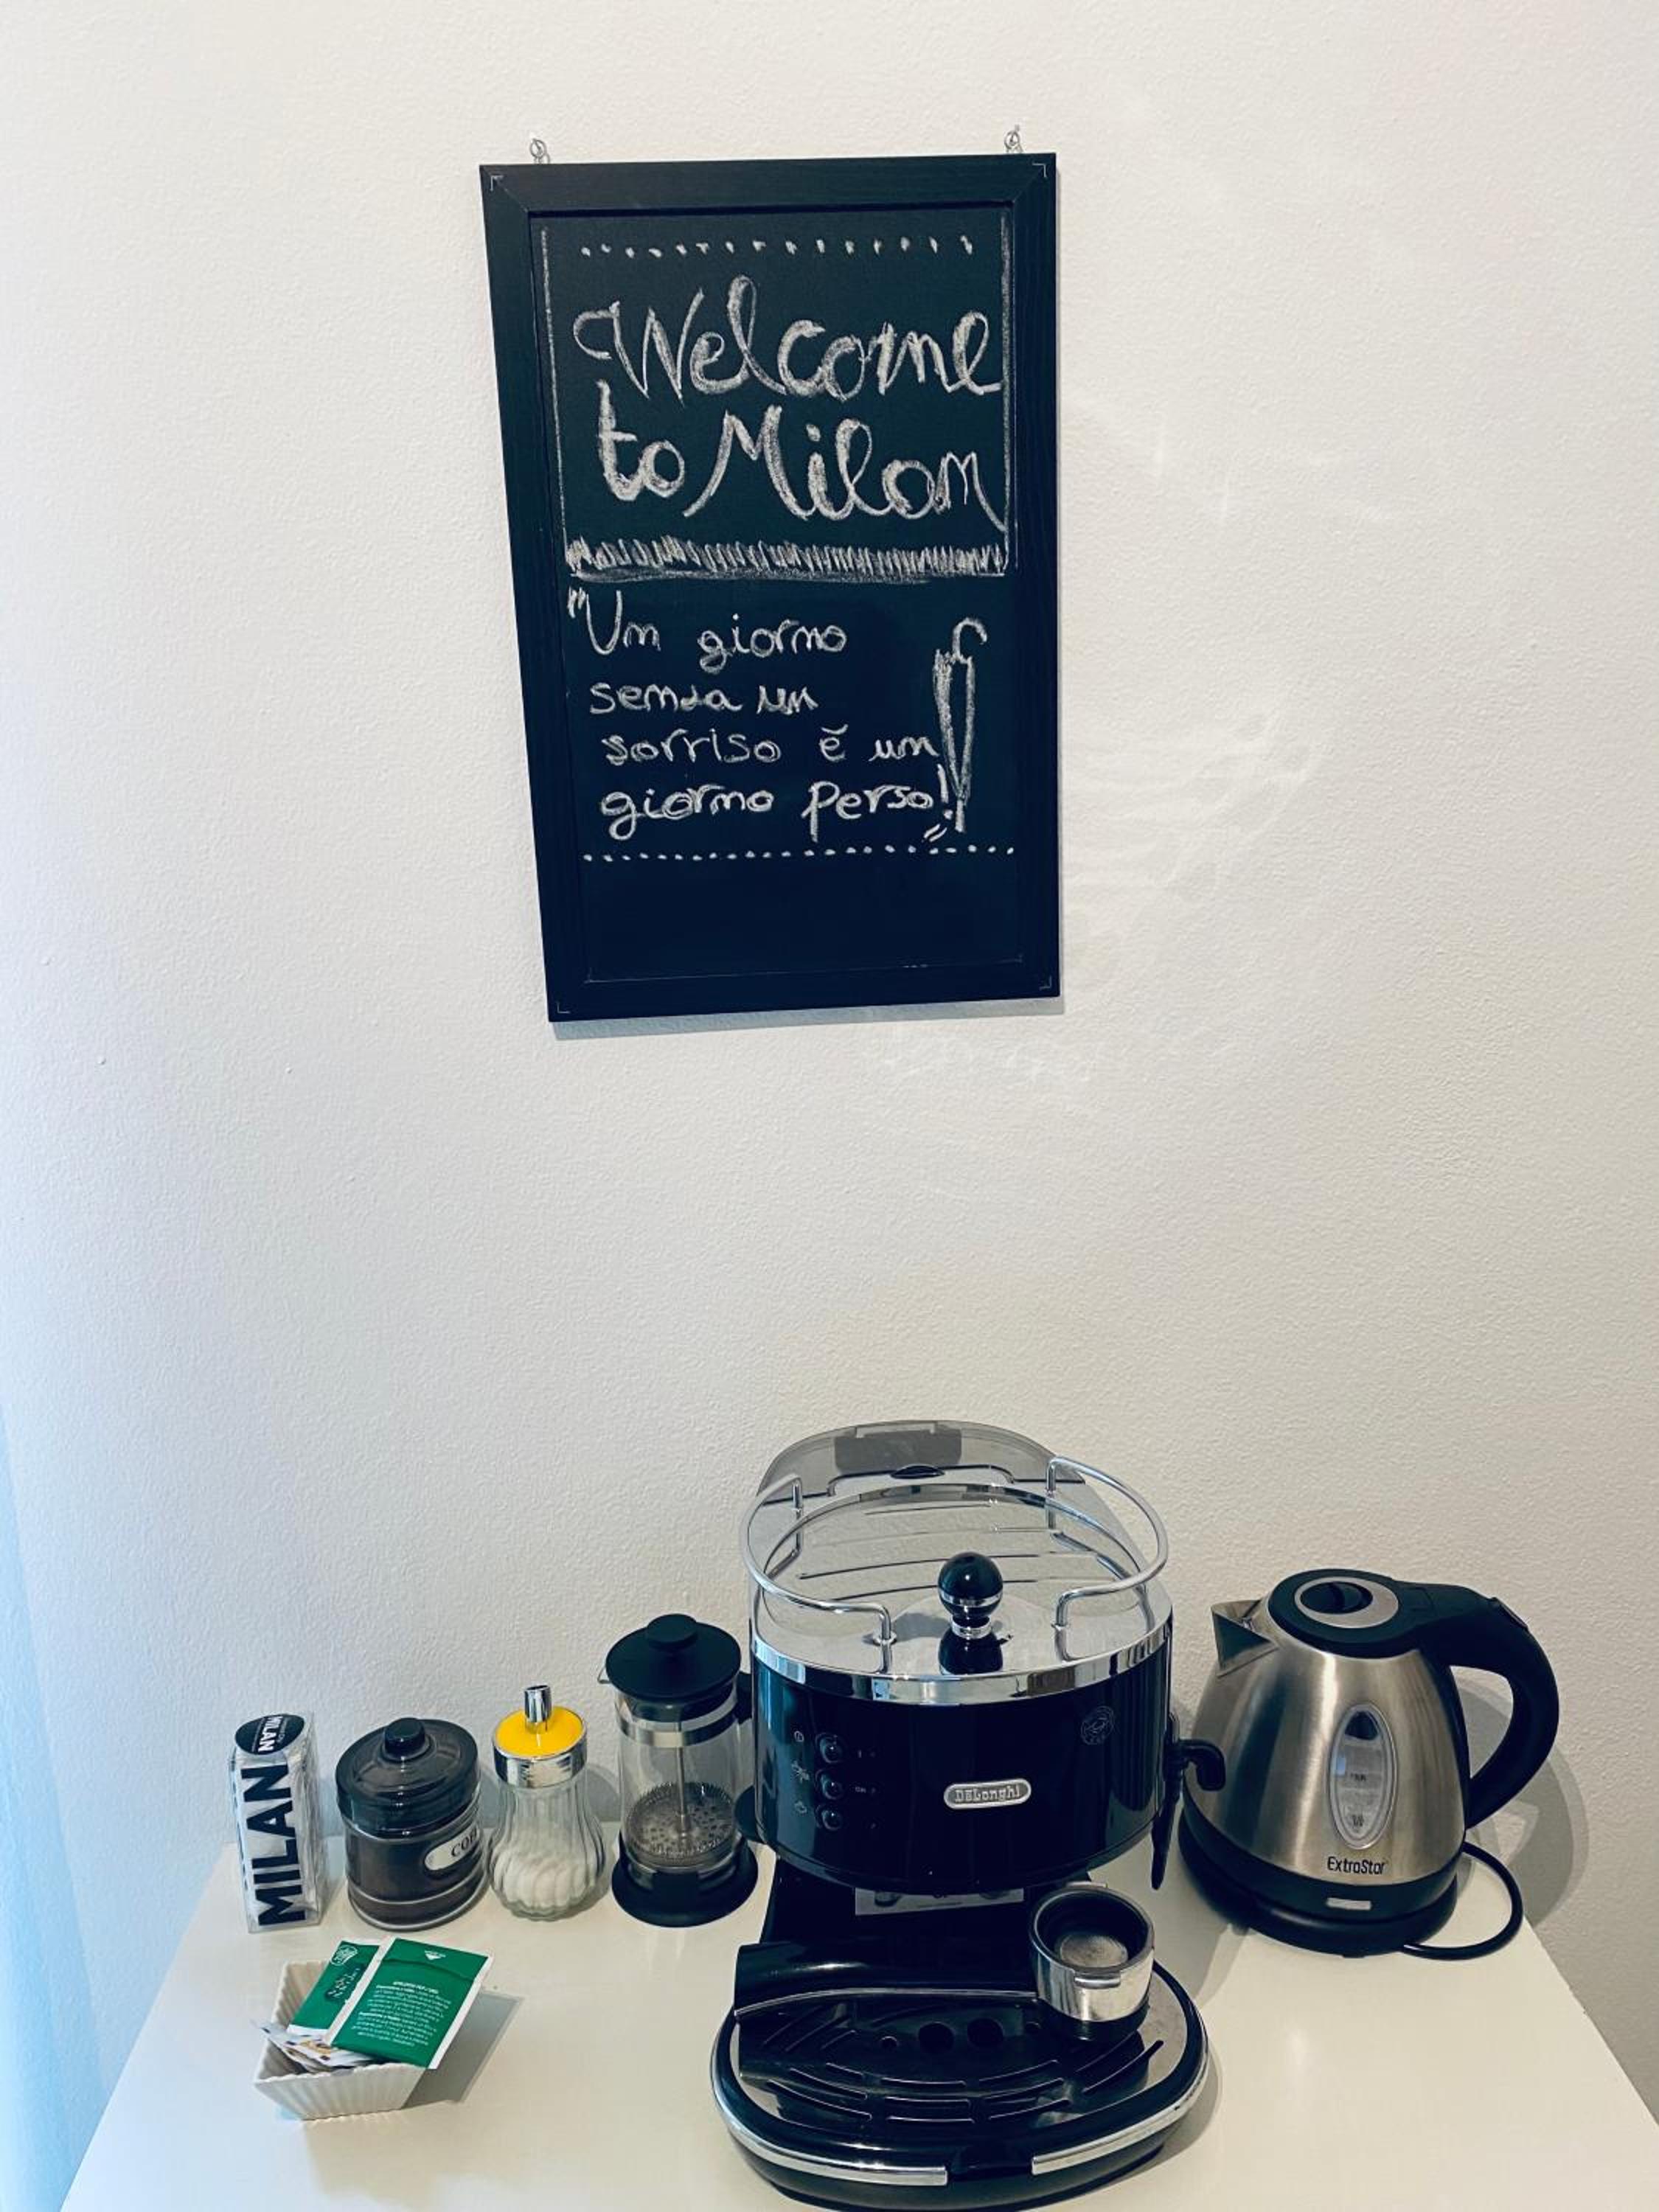 Welcome
to Milan
"Un giorno
senza un
sorriso è un
giorno perso!"
MILAN
MILAN
DeLonghi
ExtraStar